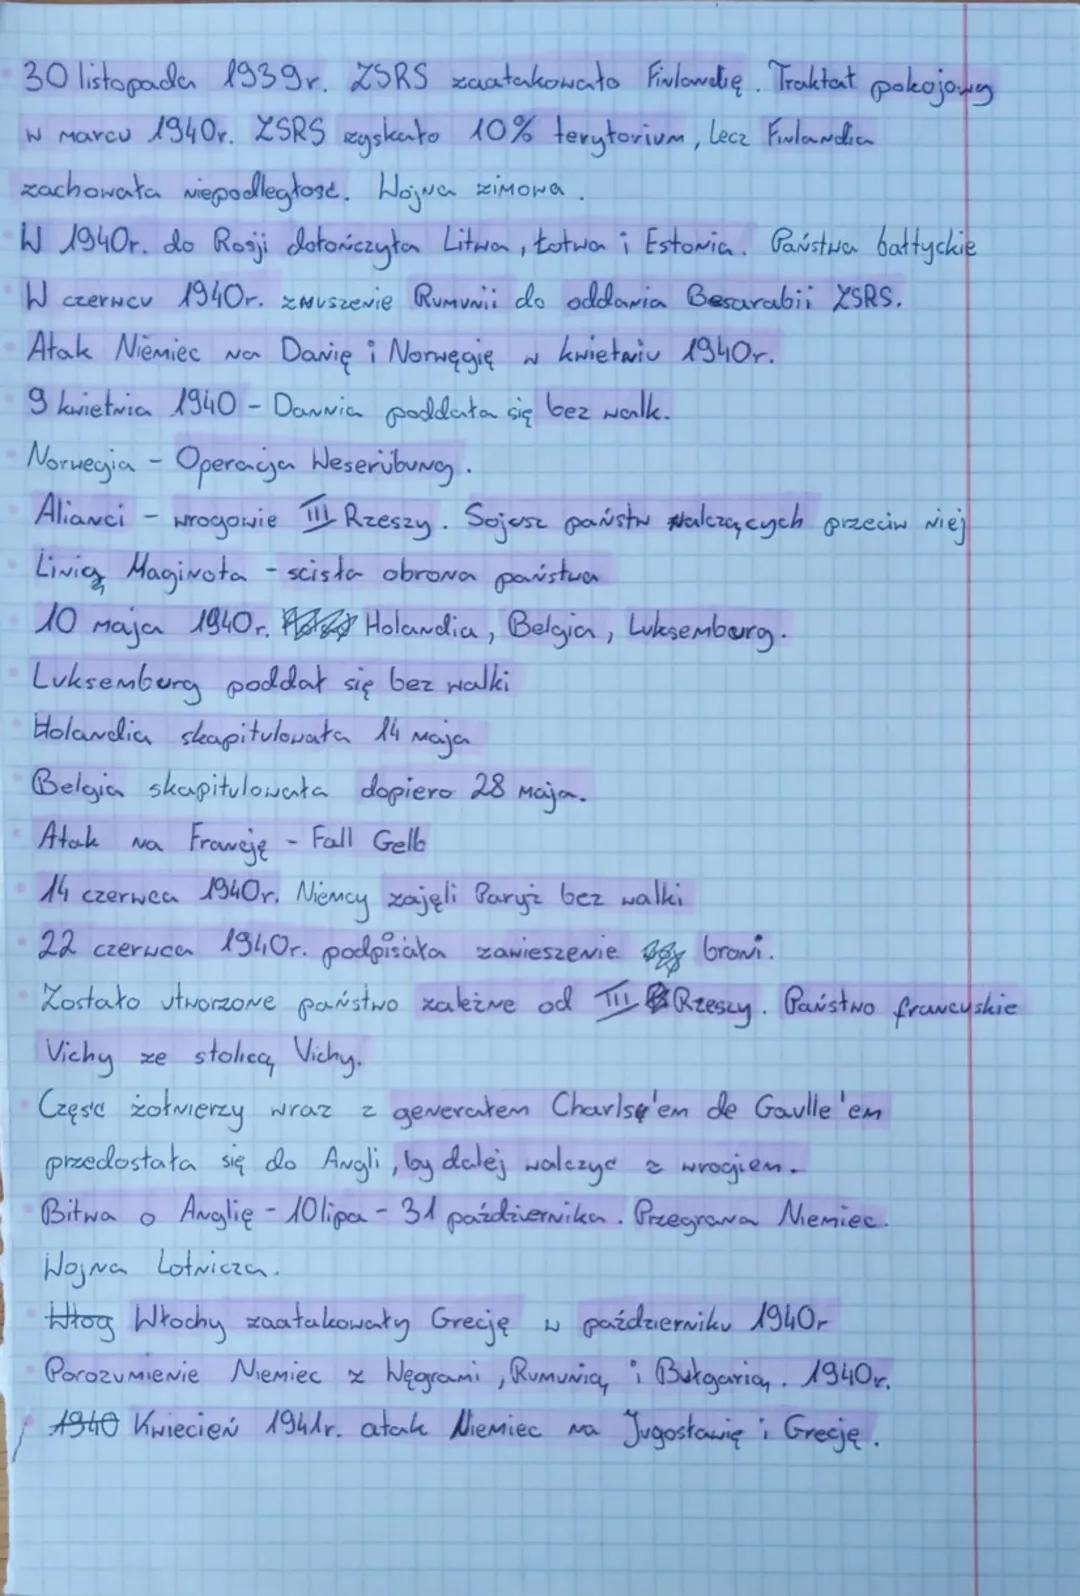 30 listopada 1939r. ZSRS zaatakowało Finlandię. Traktat pokojowy
w marcu 1940r. ZSRS zyskało 10% terytorium, lecz Finlandia
zachowała niepodległość. Wojna zimowa.
W 1940r. do Rosji dołończyła Litwa, Łotwa i Estonia. Państwa bałtyckie
W czerwcu 1940r. zmuszenie Rumunii do oddania Besarabii ZSRS.
Atak Niemiec na Danię i Norwęgię w kwietniu 1940r.
9 kwietnia 1940 - Dannia poddała się bez walk.
Norwegia - Operacja Weserübung.
Alianci - wrogowie III Rzeszy. Sojusz państw walczących przeciw niej
Linią Maginota - scisła obrona państwa
10 maja 1940r. Holandia, Belgia, Luksemburg.
Luksemburg poddał się bez walki
Holandia skapitulowała 14 maja
Belgia skapitulowała dopiero 28 maja.
Atak na Francję - Fall Gelb
14 czerwca 1940r. Niemcy zajęli Paryż bez walki
22 czerwca 1940r. podpisała zawieszenie broni.
Zostało utworzone państwo zależne od III Rzeszy. Państwo francuskie
Vichy ze stolicą Vichy.
Część żołnierzy wraz z generałem Charlse'em de Gaulle'em
przedostała się do Angli, by dalej walczyć z wrogiem.
Bitwa o Anglię - 10 lipa - 31 października. Przegrana Niemiec.
Wojna Lotnicza.
Włoy Włochy zaatakowały Grecję w październiku 1940r
Porozumienie Niemiec z Węgrami, Rumunią i Bułgarią. 1940r.
1940 Kwiecień 1941r. atak Niemiec na Jugosławię i Grecję.